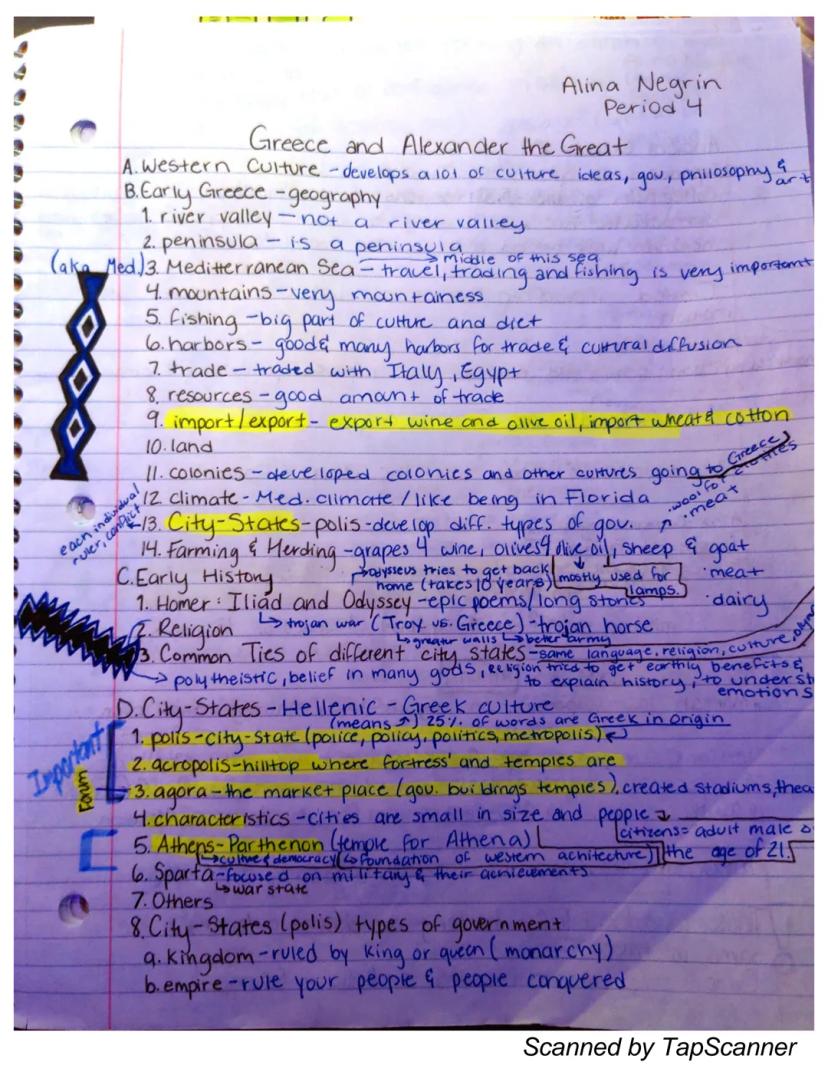 Alina Negrin
Period 4
Greece and Alexander the Great
A. Western Culture - develops a lot of culture ideas, gov, philosophy & art
B. Early Greece - geography
1. river valley - not a river valley
2. peninsula - is a peninsula
middle of this sea
(aka Med.) 3. Mediterranean Sea - travel, trading and fishing is very important
4. mountains - very mountainess
5. fishing - big part of culture and diet
6. harbors - good & many harbors for trade & cultural diffusion
7. trade - traded with Italy, Egypt
8. resources - good amount of trade
9. import/export - export wine and olive oil, import wheat & cotton
10. land
11. colonies - developed colonies and other cultures going to Greece
12 climate - Med. climate / like being in Florida
· wool for clothes
· meat
each individual
ruler, conflict
13. City-States - polis - develop diff. types of gov.
14. Farming & Herding - grapes 4 wine, olives 4 olive oil, sheep & goat
· meat
· dairy
mostly used for
lamps.
C. Early History
odysseus tries to get back
home (takes 10 years)
1. Homer: Iliad and Odyssey - epic poems/long stories
trojan war (Troy vs. Greece) - trojan horse
greater walls
better army
2. Religion
3. Common Ties of different city states - same language, religion, culture,
polytheistic, belief in many gods, religion tries to get earthly benefits &
to explain history, to underst
emotions
D. City-States - Hellenic - Greek culture
(means ↑) 25% of words are Greek in origin
Important
1. polis - city-state (police, policy, politics, metropolis)
2. acropolis - hilltop where fortress' and temples are
Forum
3. agora - the market place (gov. buildings temples), created stadiums, thea
4. characteristics - cities are small in size and people
citizens = adult male
the age of 21.
5. Athens - Parthenon (temple for Athena)
culture & democracy
foundation of western achitecture)
6. Sparta - focused on military & their achievements
war state
7. Others
8. City-States (polis) types of government
a. kingdom - ruled by king or queen (monarchy)
b. empire - rule your people & people conquered
Scanned by TapScanner